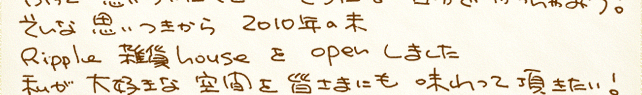 そんな思いつきから 2010年の末
Ripple 雑貨houseをopenしました
私が大好きな空間を皆さまにも味わって頂きたい!